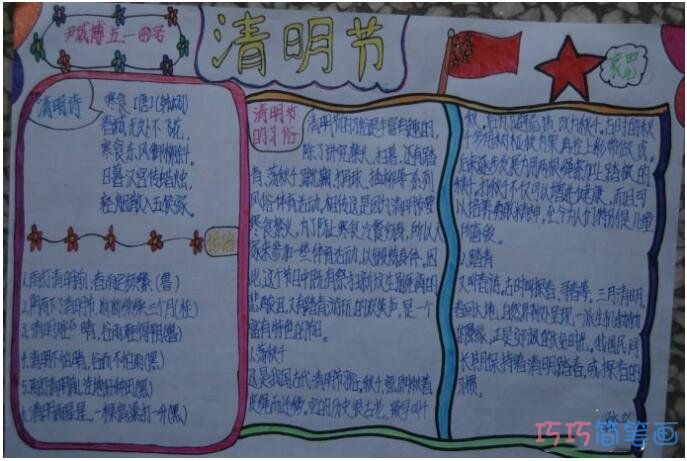 五一
清明节
清明诗
寒食 [唐] (韩翃)
春城无处不飞花，
寒食东风御柳斜。
日暮汉宫传蜡烛，
轻烟散入五侯家。
谚语
1.雨打清明前，春雨定频繁(鲁)
3.清明难 晴，谷雨难得朝(鲁)
4.清明不怕晴，谷雨不怕雨(黑)
5.雨打清明前，洼地好种田(黑)
清明节
的习俗
清明节的习俗是丰富有趣的，
除了讲究禁火、扫墓，还有踏
青、荡秋千、蹴鞠、打马球、插柳等一系列
风俗体育活动。相传这是因为清明节要
寒食禁火，为了防止寒食冷餐伤身，所以大
家来参加一些体育活动，以锻炼身体。因
此，这个节日中既有祭扫新坟生别死离的
悲酸泪，又有踏青游玩的欢笑声，是一个
富有特色的节日。
1.荡秋千
这是我国古代清明节习俗。秋千，意即揪着
皮绳而迁移。它的历史很古老，最早叫千
秋，后为避忌讳，改为秋千。古时的秋
千多用树桠枝为架，再拴上彩带做成。
后来逐步发展为用两根绳索加上踏板的
秋千。打秋千不仅可以增进健康，而且可
以培养勇敢精神，至今为人们特别是儿童
所喜爱。
2.踏青
又叫春游。古时叫探春、寻春等。三月清明，
春回大地，自然界到处呈现一派生机勃勃
的景象，正是郊游的大好时光。我国民间
长期保持着清明踏青，或探春的
习惯。
巧巧简笔画